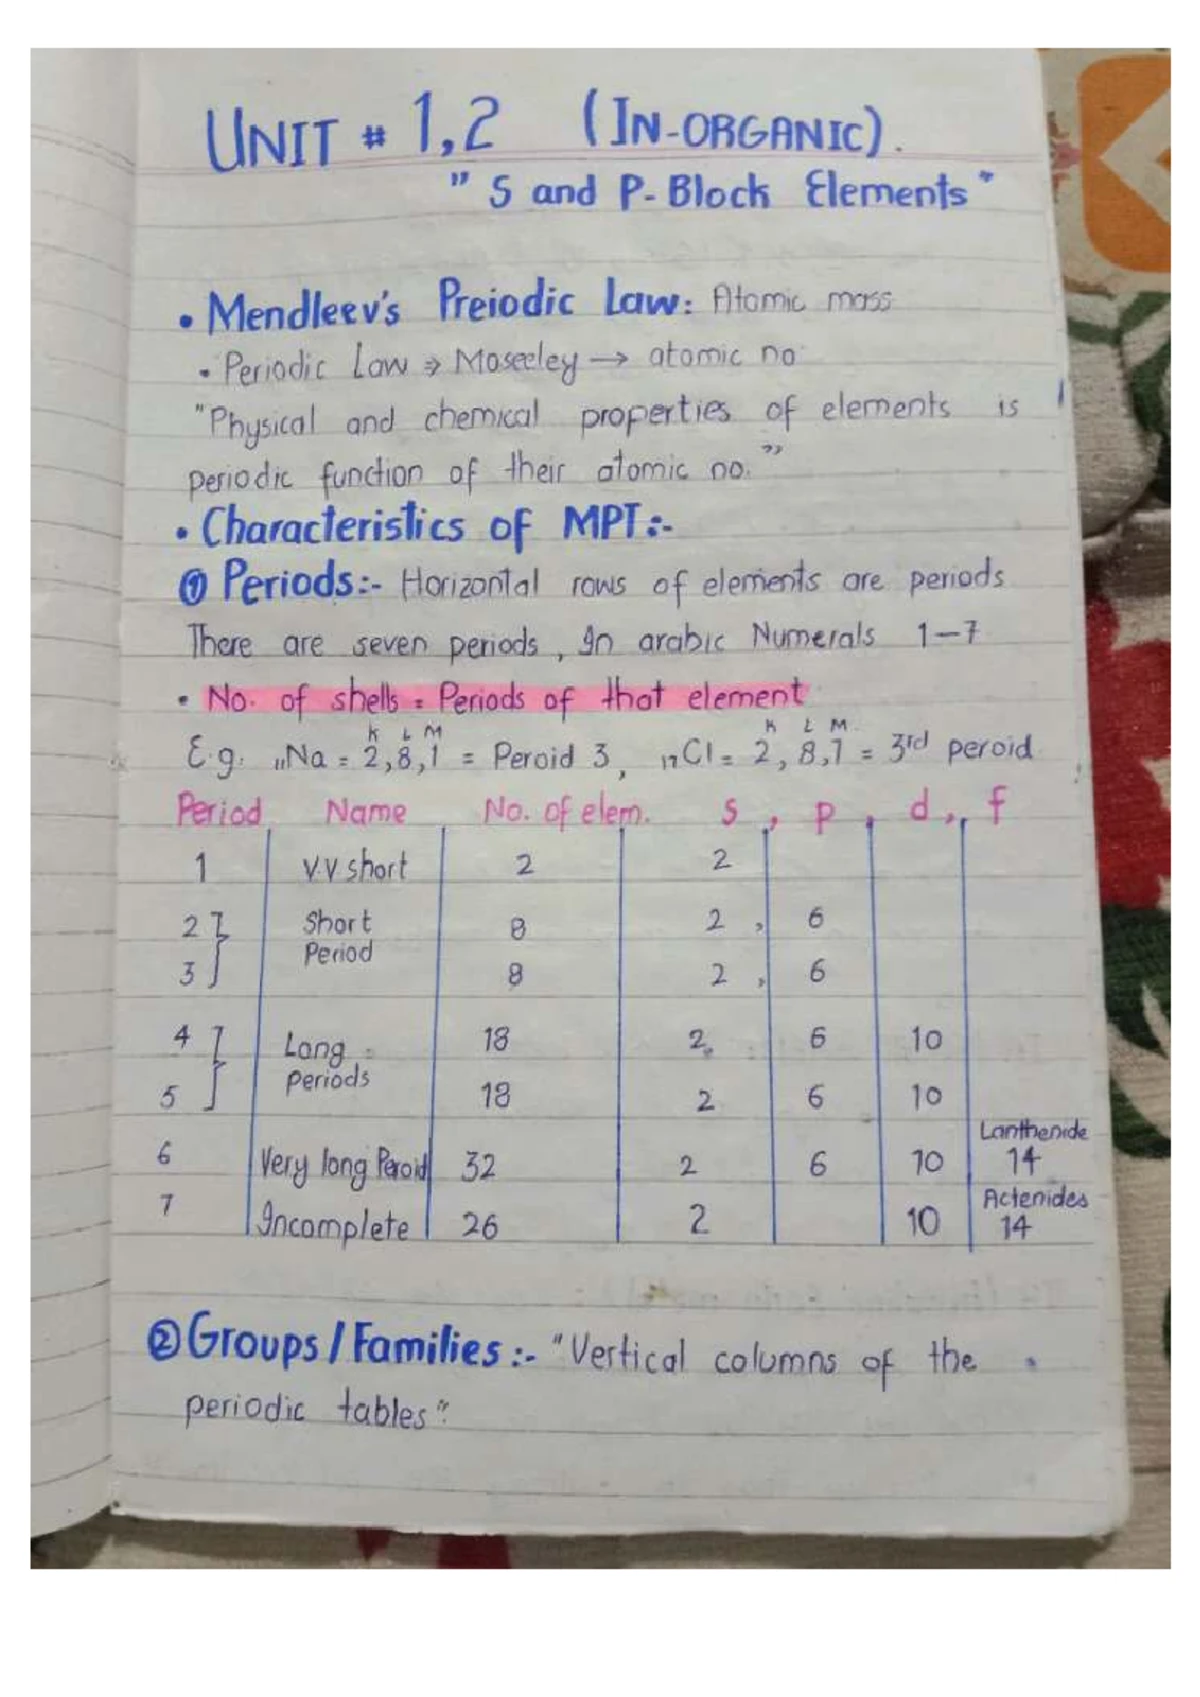 UNIT # 1,2 (IN-ORGANIC).
" S and P-Block Elements "
• Mendleev's Preiodic Law: Atomic mass
• Periodic Law ⇒ Moseeley → atomic no.
"Physical and chemical properties of elements is
periodic function of their atomic no. "
• Characteristics of MPT:-
① Periods:- Horizontal rows of elements are periods
There are seven periods, In arabic Numerals 1-7
• No. of shells = Periods of that element
K L M K L M
E.g. ₁₁Na = 2,8,1 = Peroid 3, ₁₇Cl = 2, 8,7 = 3rd peroid
Period Name No. of elem. S , P , d , f
1 V.V short 2 2
2 Short 8 2 , 6
Period
3 8 2 , 6
4 Long 18 2, 6 10
periods
5 18 2 6 10
Lanthenide
6 Very long Peroid 32 2 6 10 14
Actenides
7 Incomplete 26 2 10 14
② Groups / Families:- "Vertical columns of the
periodic tables"